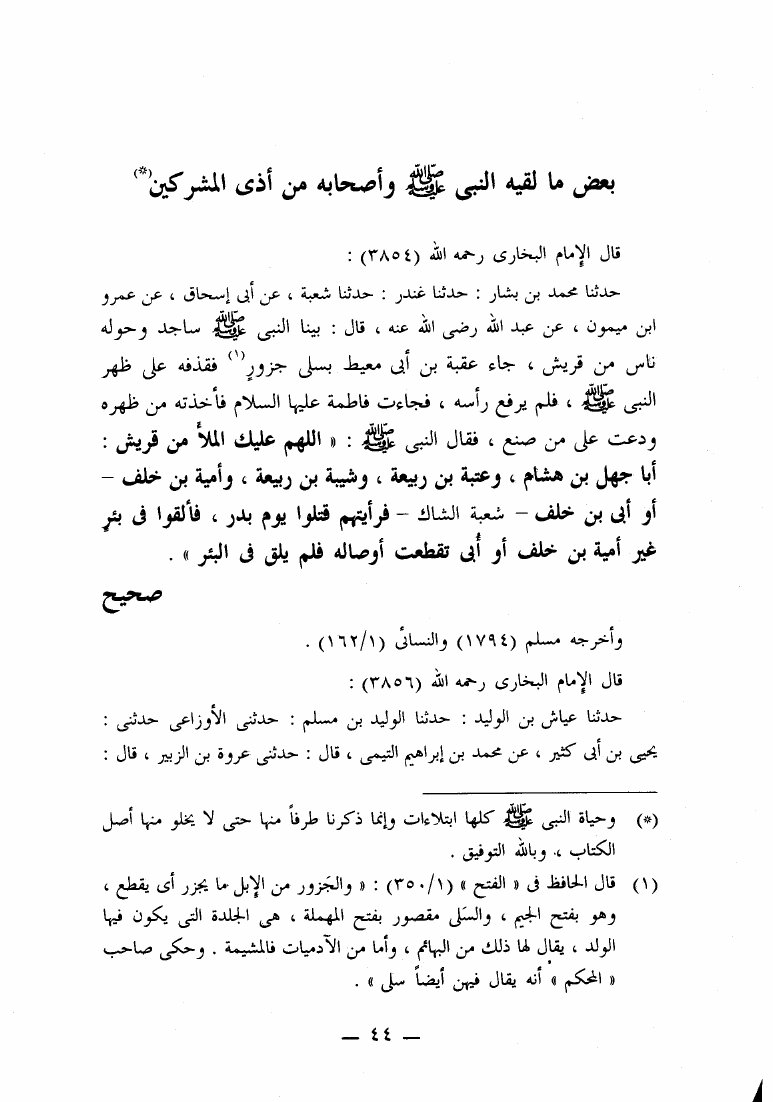 بعض ما لقيه النبى ﷺ وأصحابه من أذى المشركين(*)
قال الإمام البخارى رحمه الله (٣٨٥٤) :
حدثنا محمد بن بشار : حدثنا غندر : حدثنا شعبة ، عن أبى إسحاق ، عن عمرو
ابن ميمون ، عن عبد الله رضى الله عنه ، قال : بينا النبى ﷺ ساجد وحوله
ناس من قريش ، جاء عقبة بن أبى معيط بسلى جزورٍ(١) فقذفه على ظهر
النبى ﷺ ، فلم يرفع رأسه ، فجاءت فاطمة عليها السلام فأخذته من ظهره
ودعت على من صنع ، فقال النبى ﷺ : « اللهم عليك الملأ من قريش :
أبا جهل بن هشام ، وعتبة بن ربيعة ، وشيبة بن ربيعة ، وأمية بن خلف –
أو أبى بن خلف – شعبة الشاك – فرأيتهم قتلوا يوم بدر ، فألقوا فى بئرٍ
غير أمية بن خلف أو أُبى تقطعت أوصاله فلم يلق فى البئر » .
صحيح
وأخرجه مسلم (١٧٩٤) والنسائى (١٦٢/١) .
قال الإمام البخارى رحمه الله (٣٨٥٦) :
حدثنا عياش بن الوليد : حدثنا الوليد بن مسلم : حدثنى الأوزاعى حدثنى :
يحيى بن أبى كثير ، عن محمد بن إبراهيم التيمى ، قال : حدثنى عروة بن الزبير ، قال :
(*) وحياة النبى ﷺ كلها ابتلاءات وإنما ذكرنا طرفاً منها حتى لا يخلو منها أصل
الكتاب ، وبالله التوفيق .
(١) قال الحافظ فى « الفتح » (٣٥٠/١) : « والجَزور من الإبل ما يجزر أى يقطع ،
وهو بفتح الجيم ، والسَلى مقصور بفتح المهملة ، هى الجلدة التى يكون فيها
الولد ، يقال لها ذلك من البهائم ، وأما من الآدميات فالمشيمة . وحكى صاحب
« المحكم » أنه يقال فيهن أيضاً سلى » .
— ٤٤ —